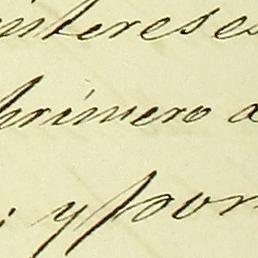 intereses
primero a
; y por